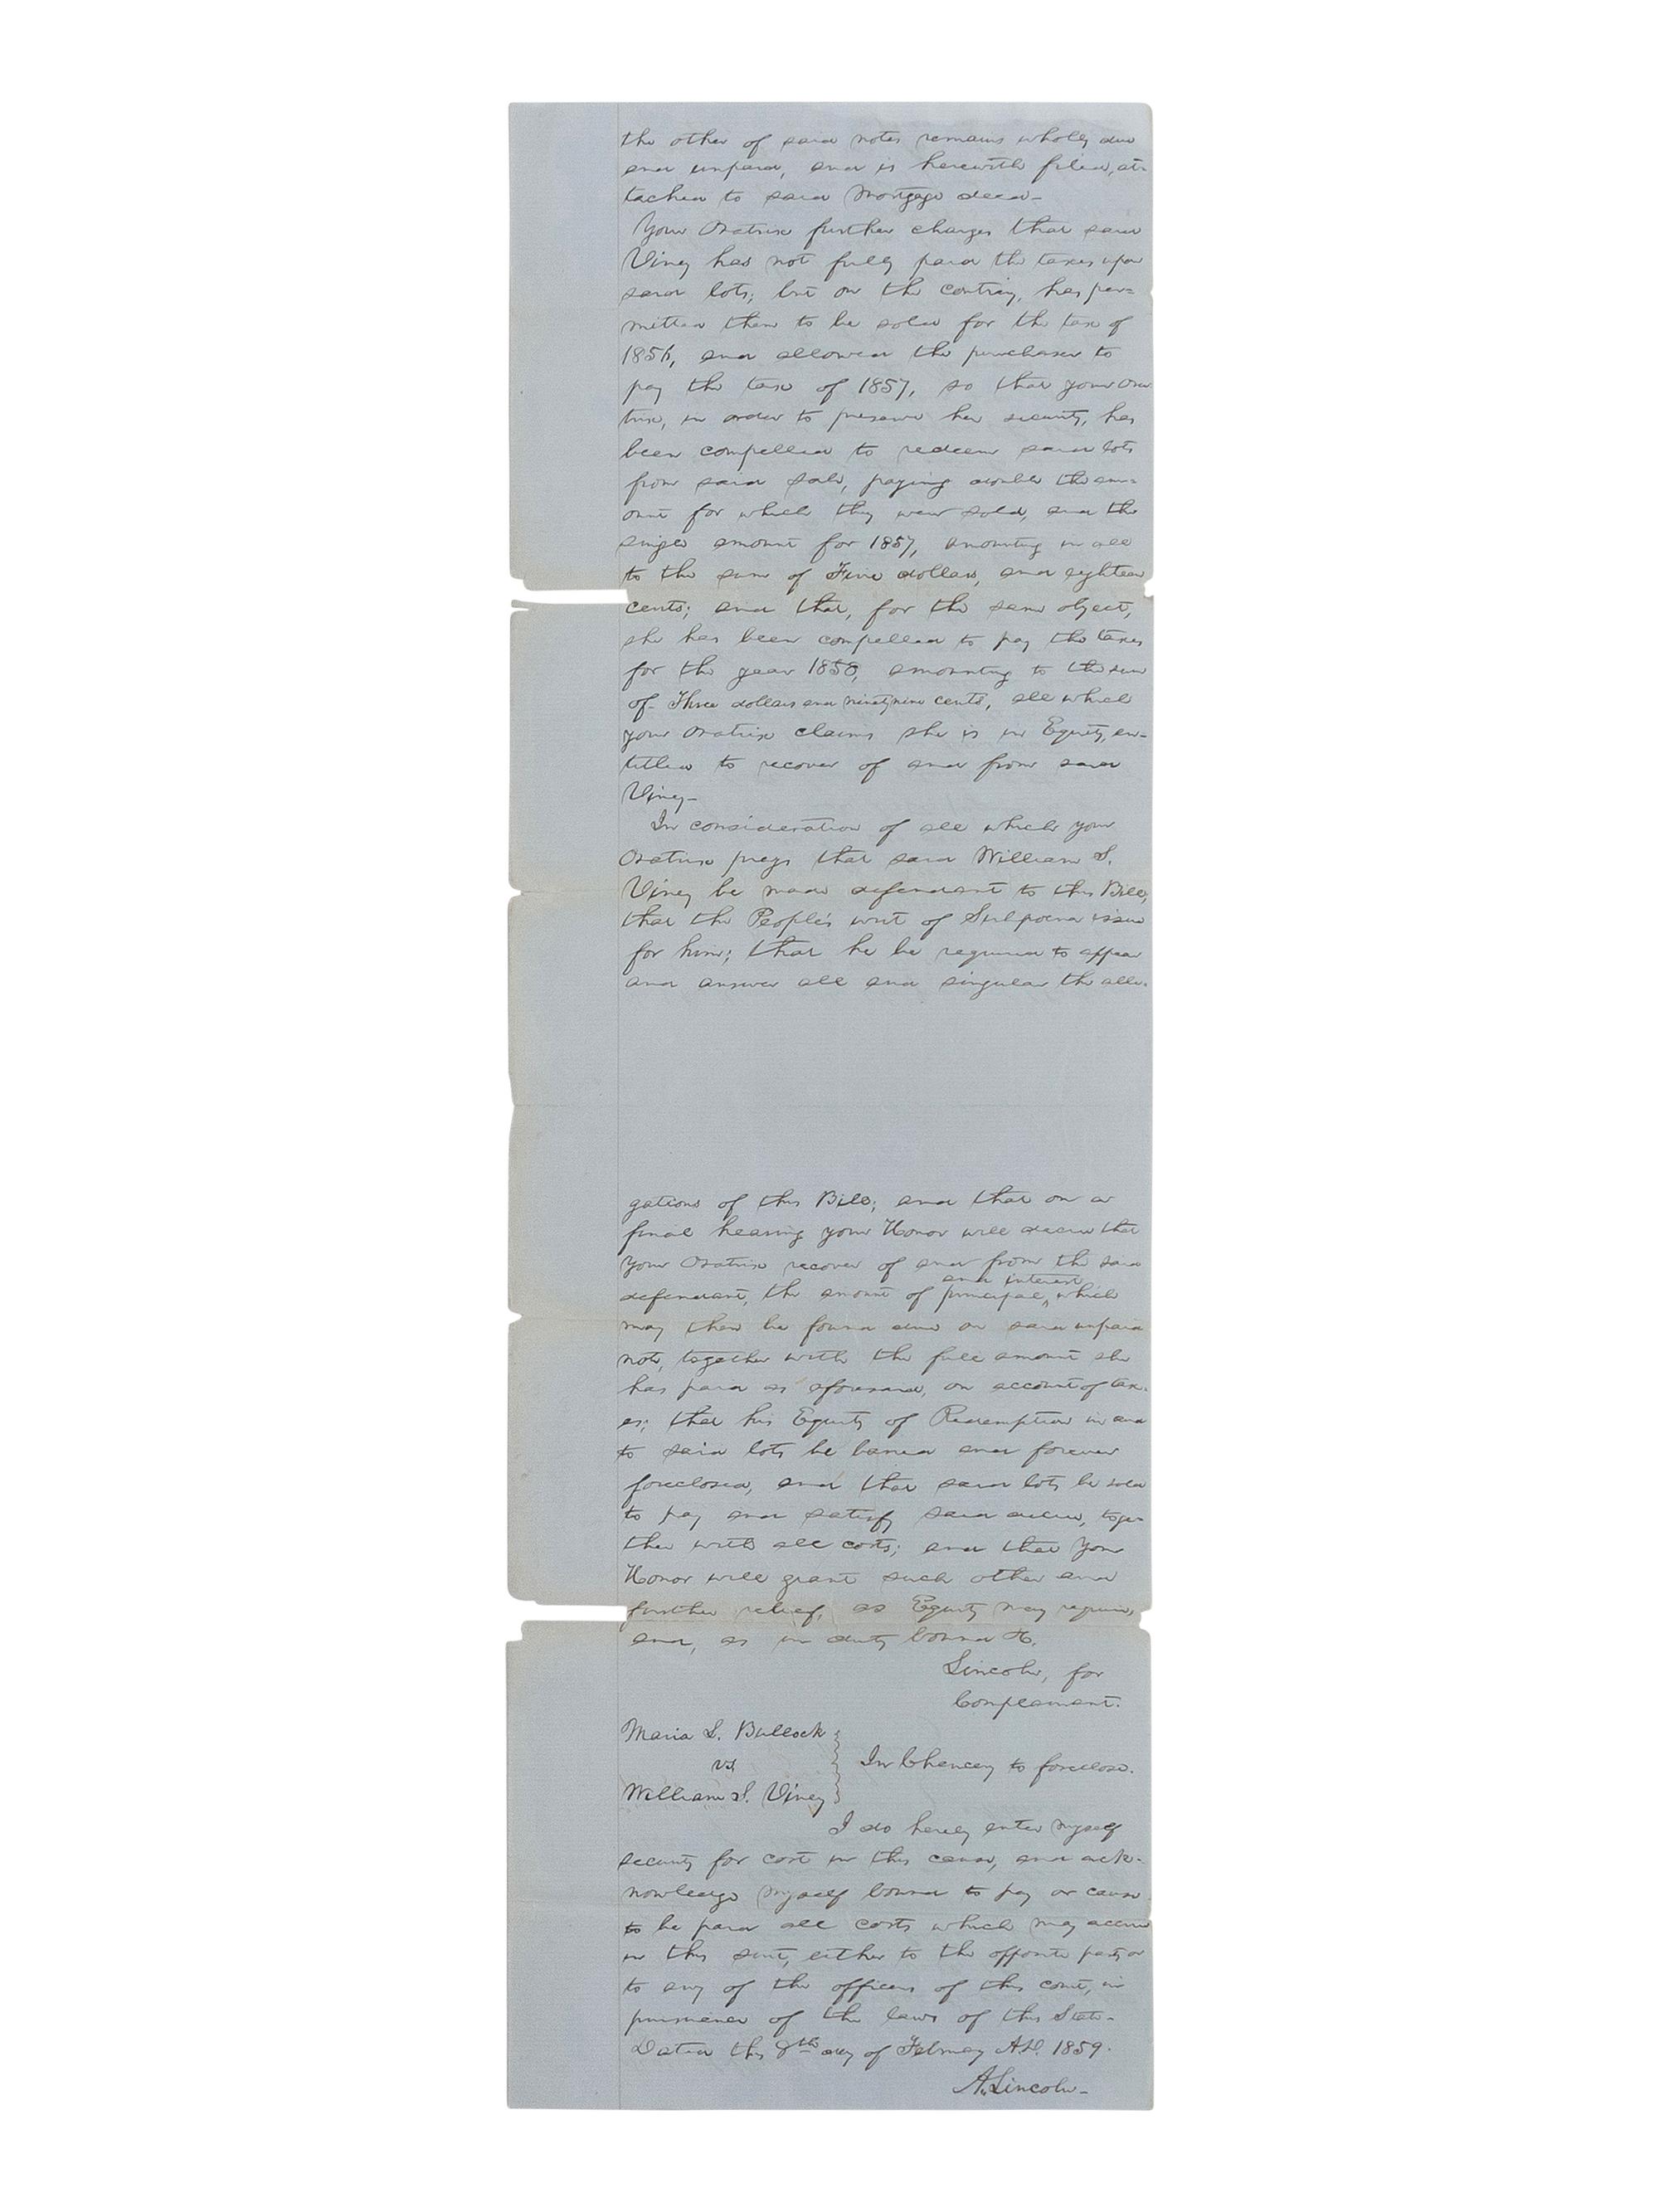 the other of said notes remains wholly due
and unpaid, and is herewith filed, at-
tached to said Mortgage deed-
Your Oratrix further charges that said
Viney has not fully paid the taxes upon
said lots; but on the contrary, has per=
mitted them to be sold for the tax of
1856, and allowed the purchaser to
pay the tax of 1857, so that your Ora
trix, in order to preserve her security, has
been compelled to redeem said lots
from said sale, paying double the am=
ount for which they were sold, and the
single amount for 1857, amounting in all
to the sum of Five dollars, and eighteen
cents; and that, for the same object,
she has been compelled to pay the taxes
for the year 1858, amounting to the sum
of Three dollars and ninety nine cents, all which
your Oratrix claims she is in Equity, en-
titled to recover of and from said
Viney-
In consideration of all which your
Oratrix prays that said William S.
Viney be made defendant to this Bill,
that the People's writ of Subpoena issue
for him; that he be required to appear
and answer all and singular the alle-
gations of this Bill; and that on a
final hearing your Honor will decree that
your Oratrix recover of and from the said
and interest
defendant, the amount of principal, ‸ which
may then be found due on said unpaid
note, together with the full amount she
has paid as aforesaid, on account of tax-
es; that his Equity of Redemption in and
to said lots be barred and forever
foreclosed, and that said lots be sold
to pay and satisfy said decree, toge-
ther with all costs; and that Your
Honor will grant such other and
further relief, as Equity may require,
and, as in duty bound &c.
Lincoln, for
Complainant.
Maria L. Bullock
vs
William S. Viney
In Chancery to foreclose.
I do hereby enter myself
security for cost in this cause, and ack-
nowledge myself bound to pay or cause
to be paid all costs which may accrue
in this suit, either to the opposite party or
to any of the officers of this court, in
pursuance of the laws of this State-
Dated this 8th day of February A.D. 1859.
A. Lincoln-